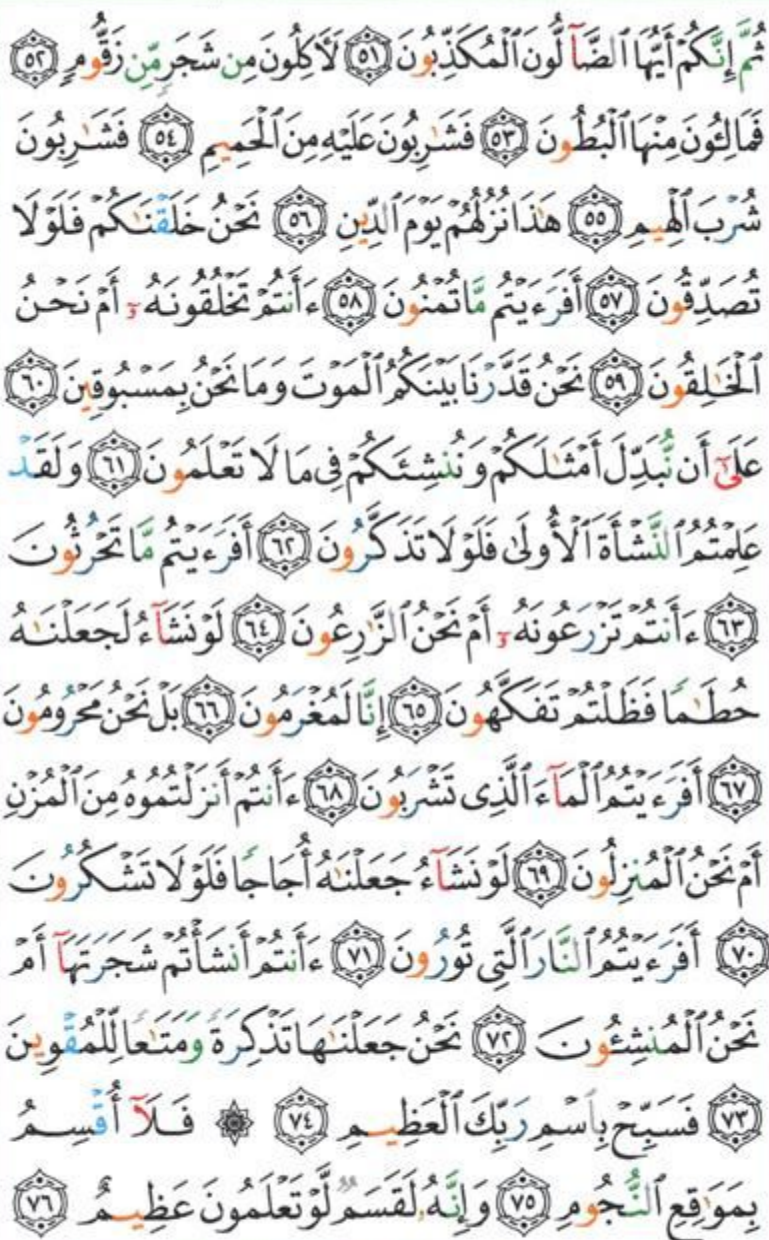 ثُمَّ إِنَّكُمْ أَيُّهَا ٱلضَّآلُّونَ ٱلْمُكَذِّبُونَ ٥١ لَأٓكِلُونَ مِن شَجَرٍ مِّن زَقُّومٍ ٥٢
فَمَالِـُٔونَ مِنْهَا ٱلْبُطُونَ ٥٣ فَشَـٰرِبُونَ عَلَيْهِ مِنَ ٱلْحَمِيمِ ٥٤ فَشَـٰرِبُونَ
شُرْبَ ٱلْهِيمِ ٥٥ هَـٰذَا نُزُلُهُمْ يَوْمَ ٱلدِّينِ ٥٦ نَحْنُ خَلَقْنَـٰكُمْ فَلَوْلَا
تُصَدِّقُونَ ٥٧ أَفَرَءَيْتُم مَّا تُمْنُونَ ٥٨ ءَأَنتُمْ تَخْلُقُونَهُۥٓ أَمْ نَحْنُ
ٱلْخَـٰلِقُونَ ٥٩ نَحْنُ قَدَّرْنَا بَيْنَكُمُ ٱلْمَوْتَ وَمَا نَحْنُ بِمَسْبُوقِينَ ٦٠
عَلَىٰٓ أَن نُّبَدِّلَ أَمْثَـٰلَكُمْ وَنُنشِئَكُمْ فِى مَا لَا تَعْلَمُونَ ٦١ وَلَقَدْ
عَلِمْتُمُ ٱلنَّشْأَةَ ٱلْأُولَىٰ فَلَوْلَا تَذَكَّرُونَ ٦٢ أَفَرَءَيْتُم مَّا تَحْرُثُونَ
٦٣ ءَأَنتُمْ تَزْرَعُونَهُۥٓ أَمْ نَحْنُ ٱلزَّٰرِعُونَ ٦٤ لَوْ نَشَآءُ لَجَعَلْنَـٰهُ
حُطَـٰمًا فَظَلْتُمْ تَفَكَّهُونَ ٦٥ إِنَّا لَمُغْرَمُونَ ٦٦ بَلْ نَحْنُ مَحْرُومُونَ
٦٧ أَفَرَءَيْتُمُ ٱلْمَآءَ ٱلَّذِى تَشْرَبُونَ ٦٨ ءَأَنتُمْ أَنزَلْتُمُوهُ مِنَ ٱلْمُزْنِ
أَمْ نَحْنُ ٱلْمُنزِلُونَ ٦٩ لَوْ نَشَآءُ جَعَلْنَـٰهُ أُجَاجًا فَلَوْلَا تَشْكُرُونَ
٧٠ أَفَرَءَيْتُمُ ٱلنَّارَ ٱلَّتِى تُورُونَ ٧١ ءَأَنتُمْ أَنشَأْتُمْ شَجَرَتَهَآ أَمْ
نَحْنُ ٱلْمُنشِـُٔونَ ٧٢ نَحْنُ جَعَلْنَـٰهَا تَذْكِرَةً وَمَتَـٰعًا لِّلْمُقْوِينَ
٧٣ فَسَبِّحْ بِٱسْمِ رَبِّكَ ٱلْعَظِيمِ ٧٤ ۞ فَلَآ أُقْسِمُ
بِمَوَٰقِعِ ٱلنُّجُومِ ٧٥ وَإِنَّهُۥ لَقَسَمٌ لَّوْ تَعْلَمُونَ عَظِيمٌ ٧٦